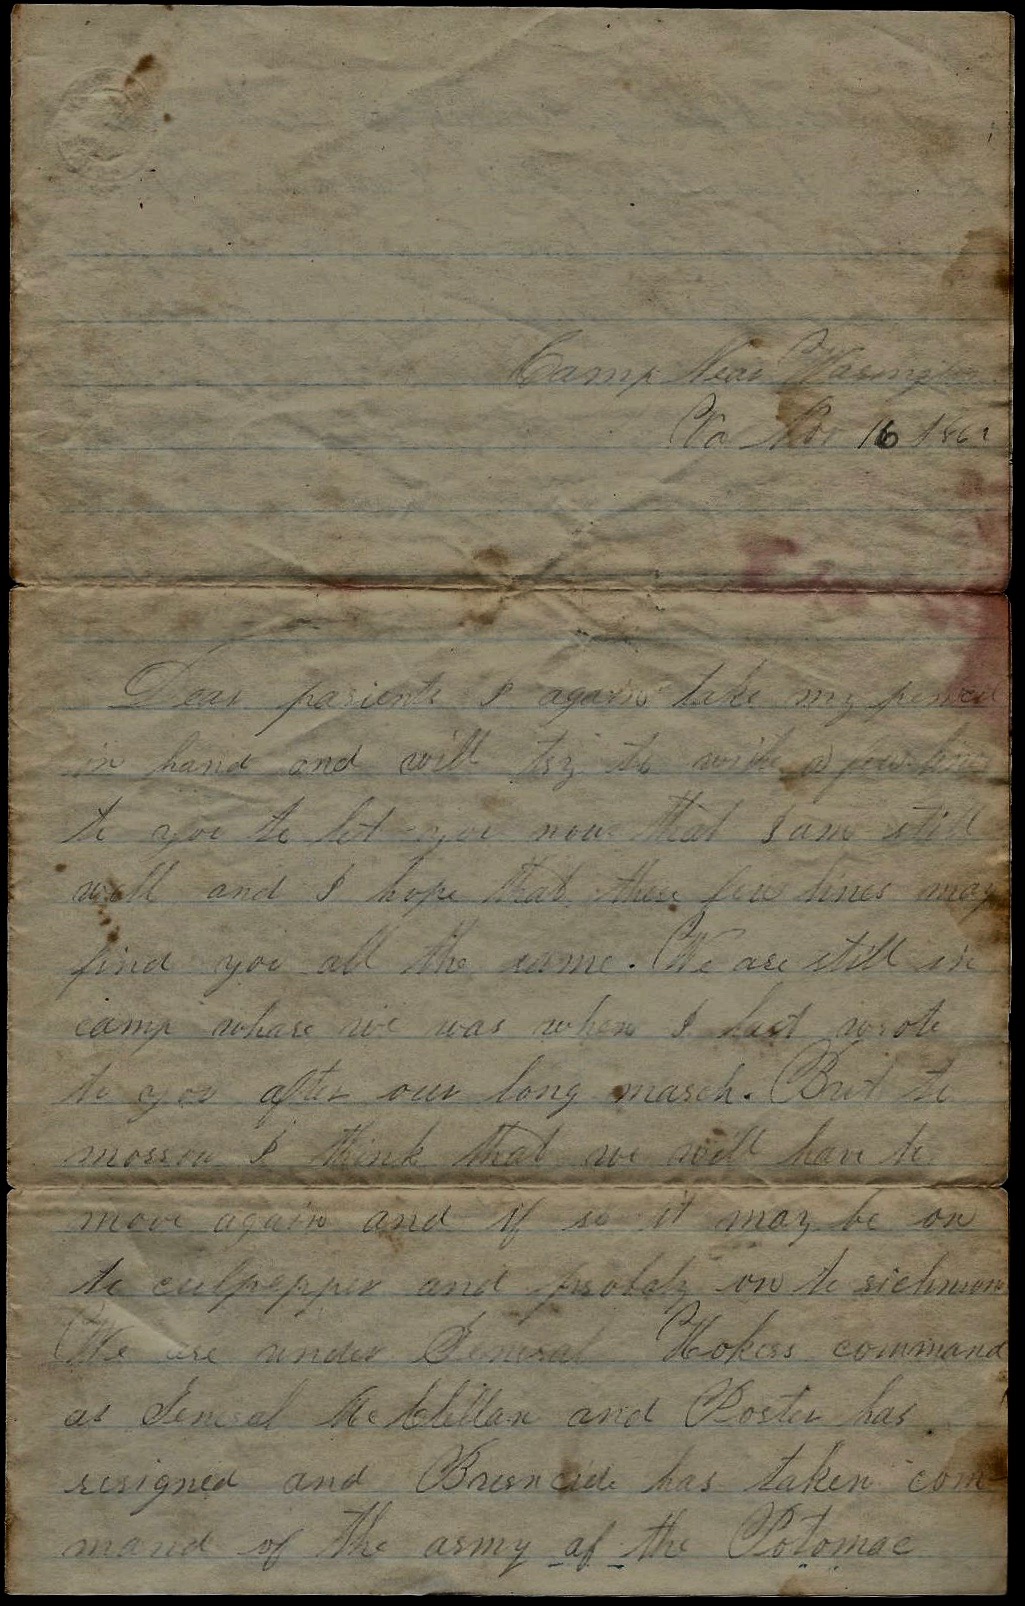 Camp Near Wasington
Va Nov 16 186
Dear parients I again take my pencil
in hand and will try to write a few lines
to you to let you now that I am still
well and I hope that these few lines may
find you all the same. We are still in
camp whare we was when I last wrote
to you after our long march. But to
morrow I think that we will have to
move again and if so it may be on
to culpepper and probaly on to richmon
We are under General Hokers command
as General Mc Clellan and Porter has
resigned and Burncide has taken com-
mand of the army of the Potomac